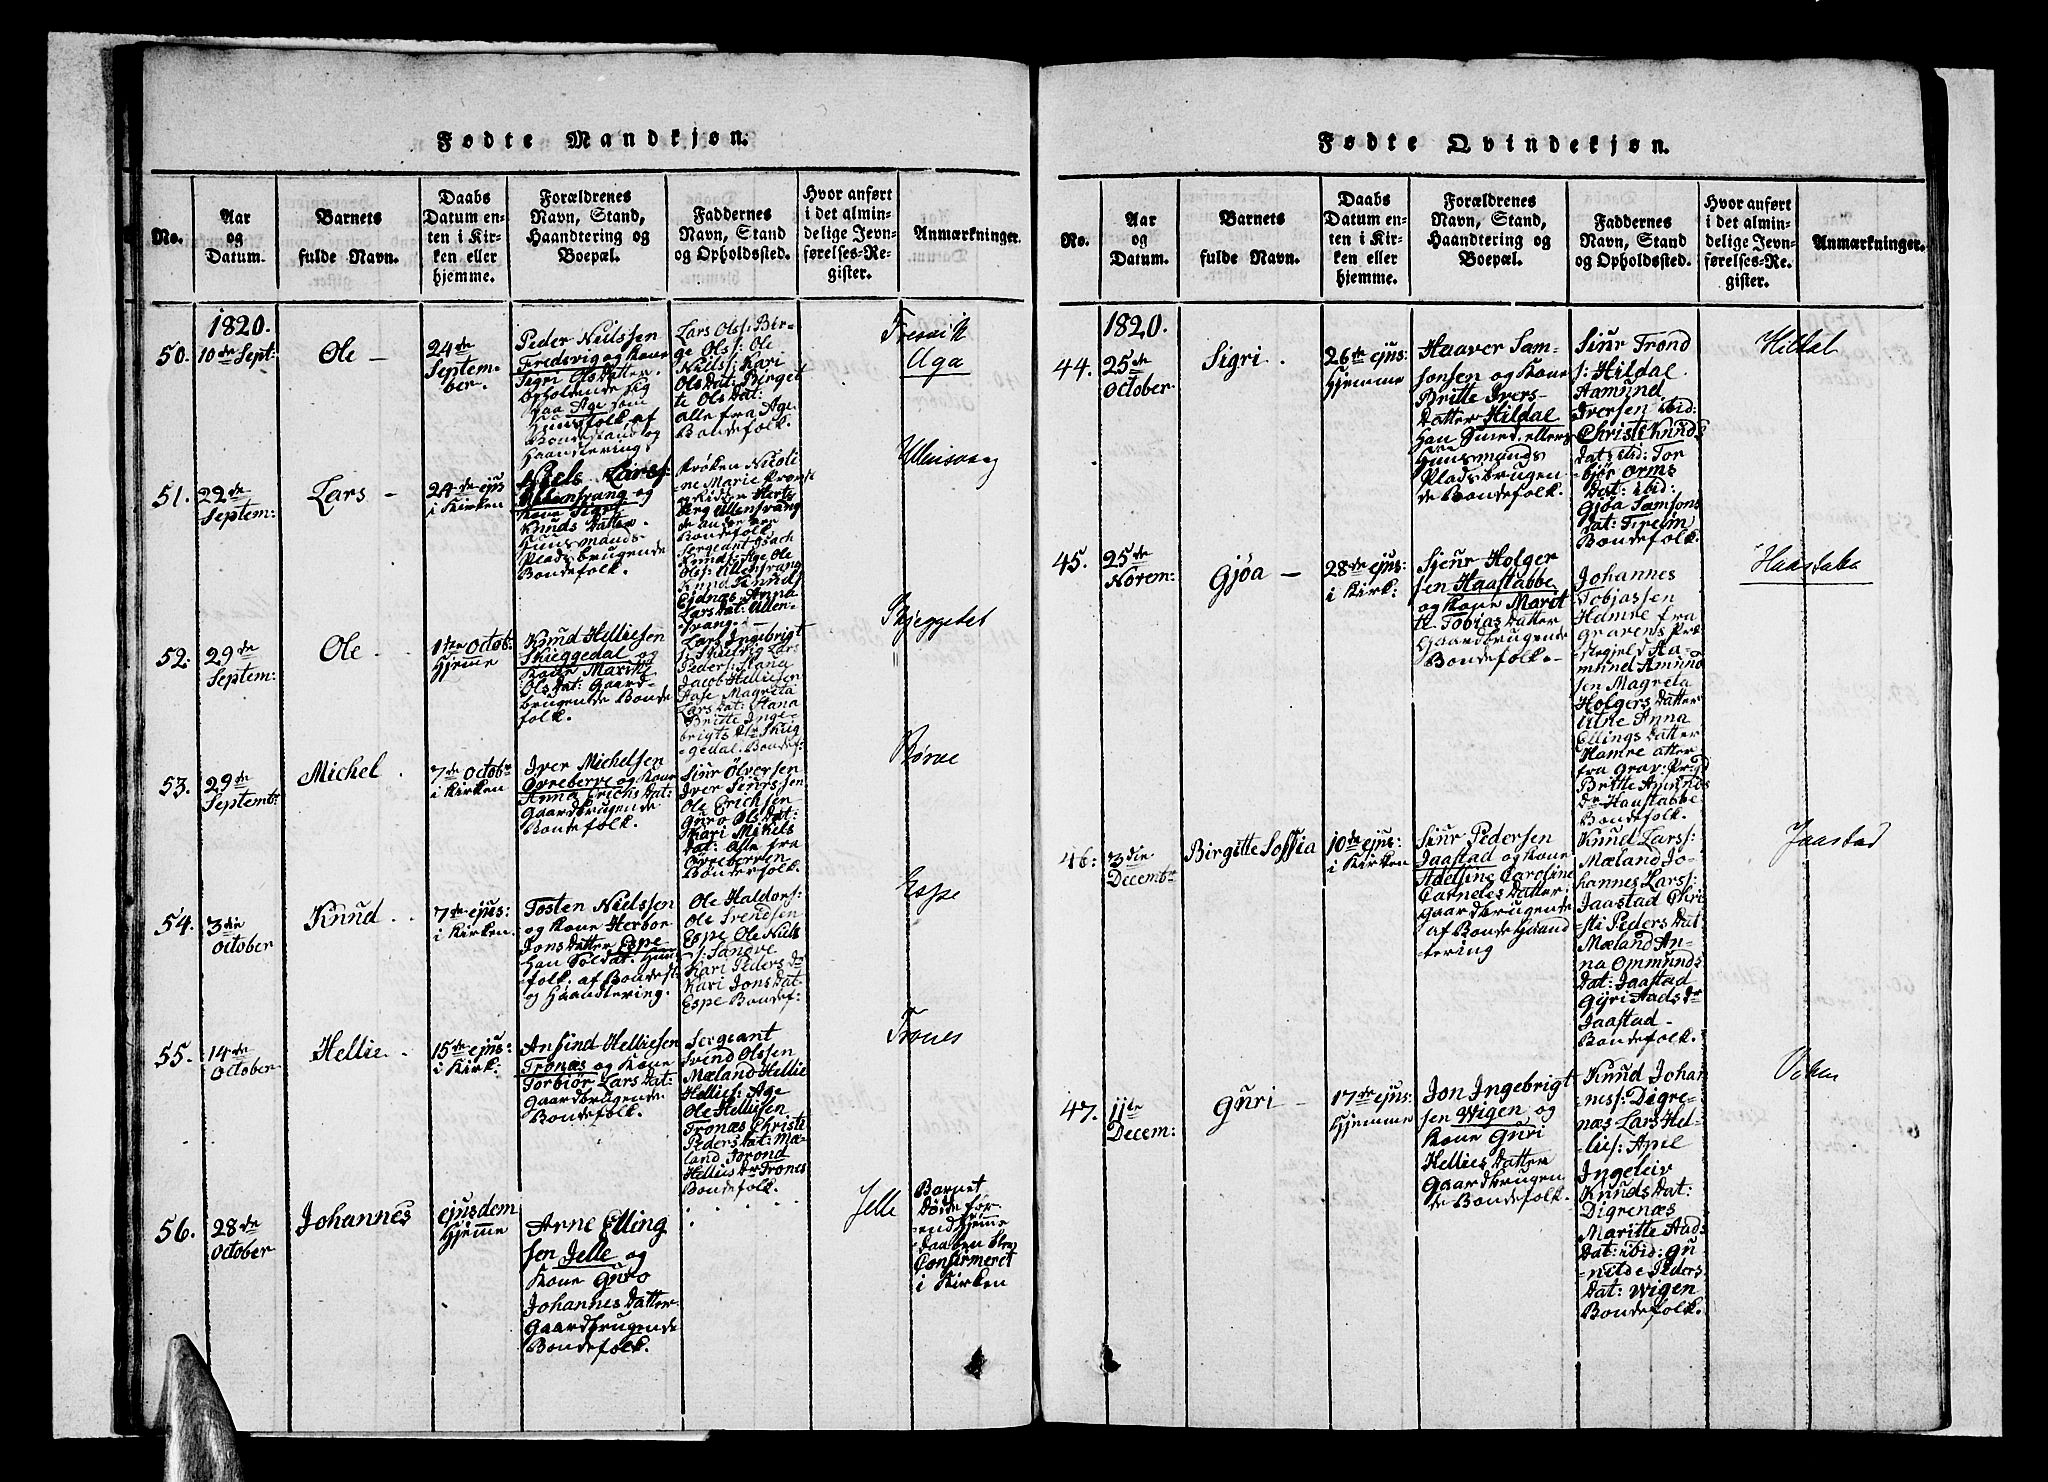 Fødte Mandkjøn.
No.
Aar
og
Datum.
Barnets
fulde Navn.
Daabs
Datum en-
ten i Kir-
ken eller
hjemme.
Forældrenes
Navn, Stand,
Haandtering og
Boepæl.
Faddernes
Navn, Stand
og Opholdssted.
Hvor anført
i det almin-
delige Jevn-
førelses-Re-
gister.
Anmærkninger.
1820.
50.
10de Sept:
Ole
24de
Septem-
ber.
Peder Nielssen
Fredevig og Kone
Sigri Ols Datter.
opholdende sig
paa Age som
Huusfolk af
Bondestand og
Haandtering.
Lars Olss: Bir-
ge Ols: Ole
Nielss: Kari
Ols Dat: Birget
te Ols Dat:
alle fra Age
Bondefolk.
Fresvik
Aga
51.
22de
Septem:
Lars
24de ejus
i Kirken
Niels Larss:
Ullensvang og
Kone Sigri
Knuds Datter.
Huusmands
Pladsbrugende
Bondefolk.
Frøken Nicoli
ne Marie
Herts
berg Ullensvang
de andre ere
Bondefolk
Sergeant Isach
Knuds: Age Ole
Ols: Ullensvang
Knud Knuds
Eidnæs: Anna
Lars Dat: Ullen-
svang.
Ullensvang
52.
29de
Septem:
Ole
1ten Octob:
Hjemme
Knud Helliesen
Skieggedal og
Kone Maritte
Ols Dat: Gaard-
brugende Bonde
folk.
Lars Ingebrigt
Lars
Peders:
Jacob Helliesen
Magreta
Lars Dat:
Britte Inge-
brigts Dr Skieg
-gedal. Bondef:
Skjeggedal
53.
29de
Septembr:
Michel
7de Octobr
i Kirken
Iver Michelsen
Øvreberve og Kone
Anna Erichs Dat:
Gaardbrugende
Bondefolk.
Siur Ølversen
Iver Siurssen
Ole Erichsen
Guro Ols Dat:
Kari Michels
Dat: Alle fra
Øvreberven
Bønderfolk.
Børve
54.
3die
October
Knud
7de ejus:
i Kirken.
Tosten Nielssen
og Kone Herbor
Jons Datter Espe
han Soldat. Huus
folk. af Bondest:
og Haandtering.
Ole Haldors:
Ole Svendsen
Espe Ole Niels
s: Sandve
Kari Peders Dr
Kari Jons Dat:
Espe Bondef:
Espe
55.
14de
October
Hellie
15de ejus:
i Kirk:
Ansind Helliesen
Tronæs og Kone
Torbiør Lars Dat:
Gaardbrugende
Bondefolk.
Sergeant
Svend Olssen
Mæland Hellie
Hellies: Age
Ole Helliesen
Tronæs Christi
Peders Dat: Mæ-
land Jorond
Hellies Dr Trones
Bondefolk.
Trones
56.
28de
October
Johannes
ejusdem
Hjemme
Arne Elling
sen Jelle og
Kone Guro
Johannes Datter
Gaardbrugende
Bondefolk.
Jelle
Barnet
døde før
end hjemme
daaben blev
Confirmeret
i Kirken
Fødte Qvindekjøn.
No.
Aar
og
Datum.
Barnets
fulde Navn.
Daabs
Datum en-
ten i Kir-
ken eller
hjemme.
Forældrenes
Navn, Stand,
Haandtering og
Boepæl.
Faddernes
Navn, Stand
og Opholdssted.
Hvor anført
i det almin-
delige Jevn-
førelses-Re-
gister.
Anmærkninger.
1820.
44.
25de
October
Sigri
26de ejus:
Hjemme
Haaver Sam-
sonsen og Kone
Britte Ivers-
Datter Hildal
han Smed. ellers
Huusmands
Pladsbrugen-
de Bondefolk.
Siur Trond
s: Hildal
Aamund
Iversen ibid:
Christi Knuds
Dat: ibid: Tor
bjør Orms
Dat: ibid:
Gjøa Samsons
Dat:
Bondefolk.
Hildal
45.
25de
Novem:
Gjøa
28de ejus:
i Kirk:
Sjeur Holger
sen Haastabbe
og Kone Marit
te Tobias Datter
Gaardbrugende
Bondefolk.
Johannes
Tobjassen
Hamre fra
Gravens Præ
stegjeld Aa-
mund Amund
sen Magreta
Holgers Datter
Utne Anna
Ellings Datter
Hamre atter
fra Grav: Prgd
Britte Amunds
Dr Haastabbe
Bondefolk.
Haastabe
46:
3die
Decembr
Birgitte Soffia
10de ejus:
i Kirken
Siur Pedersen
Jaastad og Kone
Adeline Caroline
Carneles Datter
Gaardbrugende
af Bonde Haand
tering
Knud Larss:
Mæland Jo-
hannes Larss:
Jaastad Chri
sti Peders Dat
Mæland An-
na Ommunds
Dat: Jaastad
Gyri Aads Dr
Jaastad
Bondefolk.
Jaastad
47.
11te
Decem:
Guri
17de ejus:
Hjemme
Jon Ingebrigt
sen Wigen og
Kone Guri
Hellies Datter
Gaardbrugen
de Bondefolk.
Knud Johan
ness: Digre-
næs Lars Hel-
lies: Apel
Ingeleiv
Knuds Dat:
Digrenæs
Maritte Aads
Dat: ibid: Gu
nilde Peders
Dat: Wigen
Bondefolk.
Viken